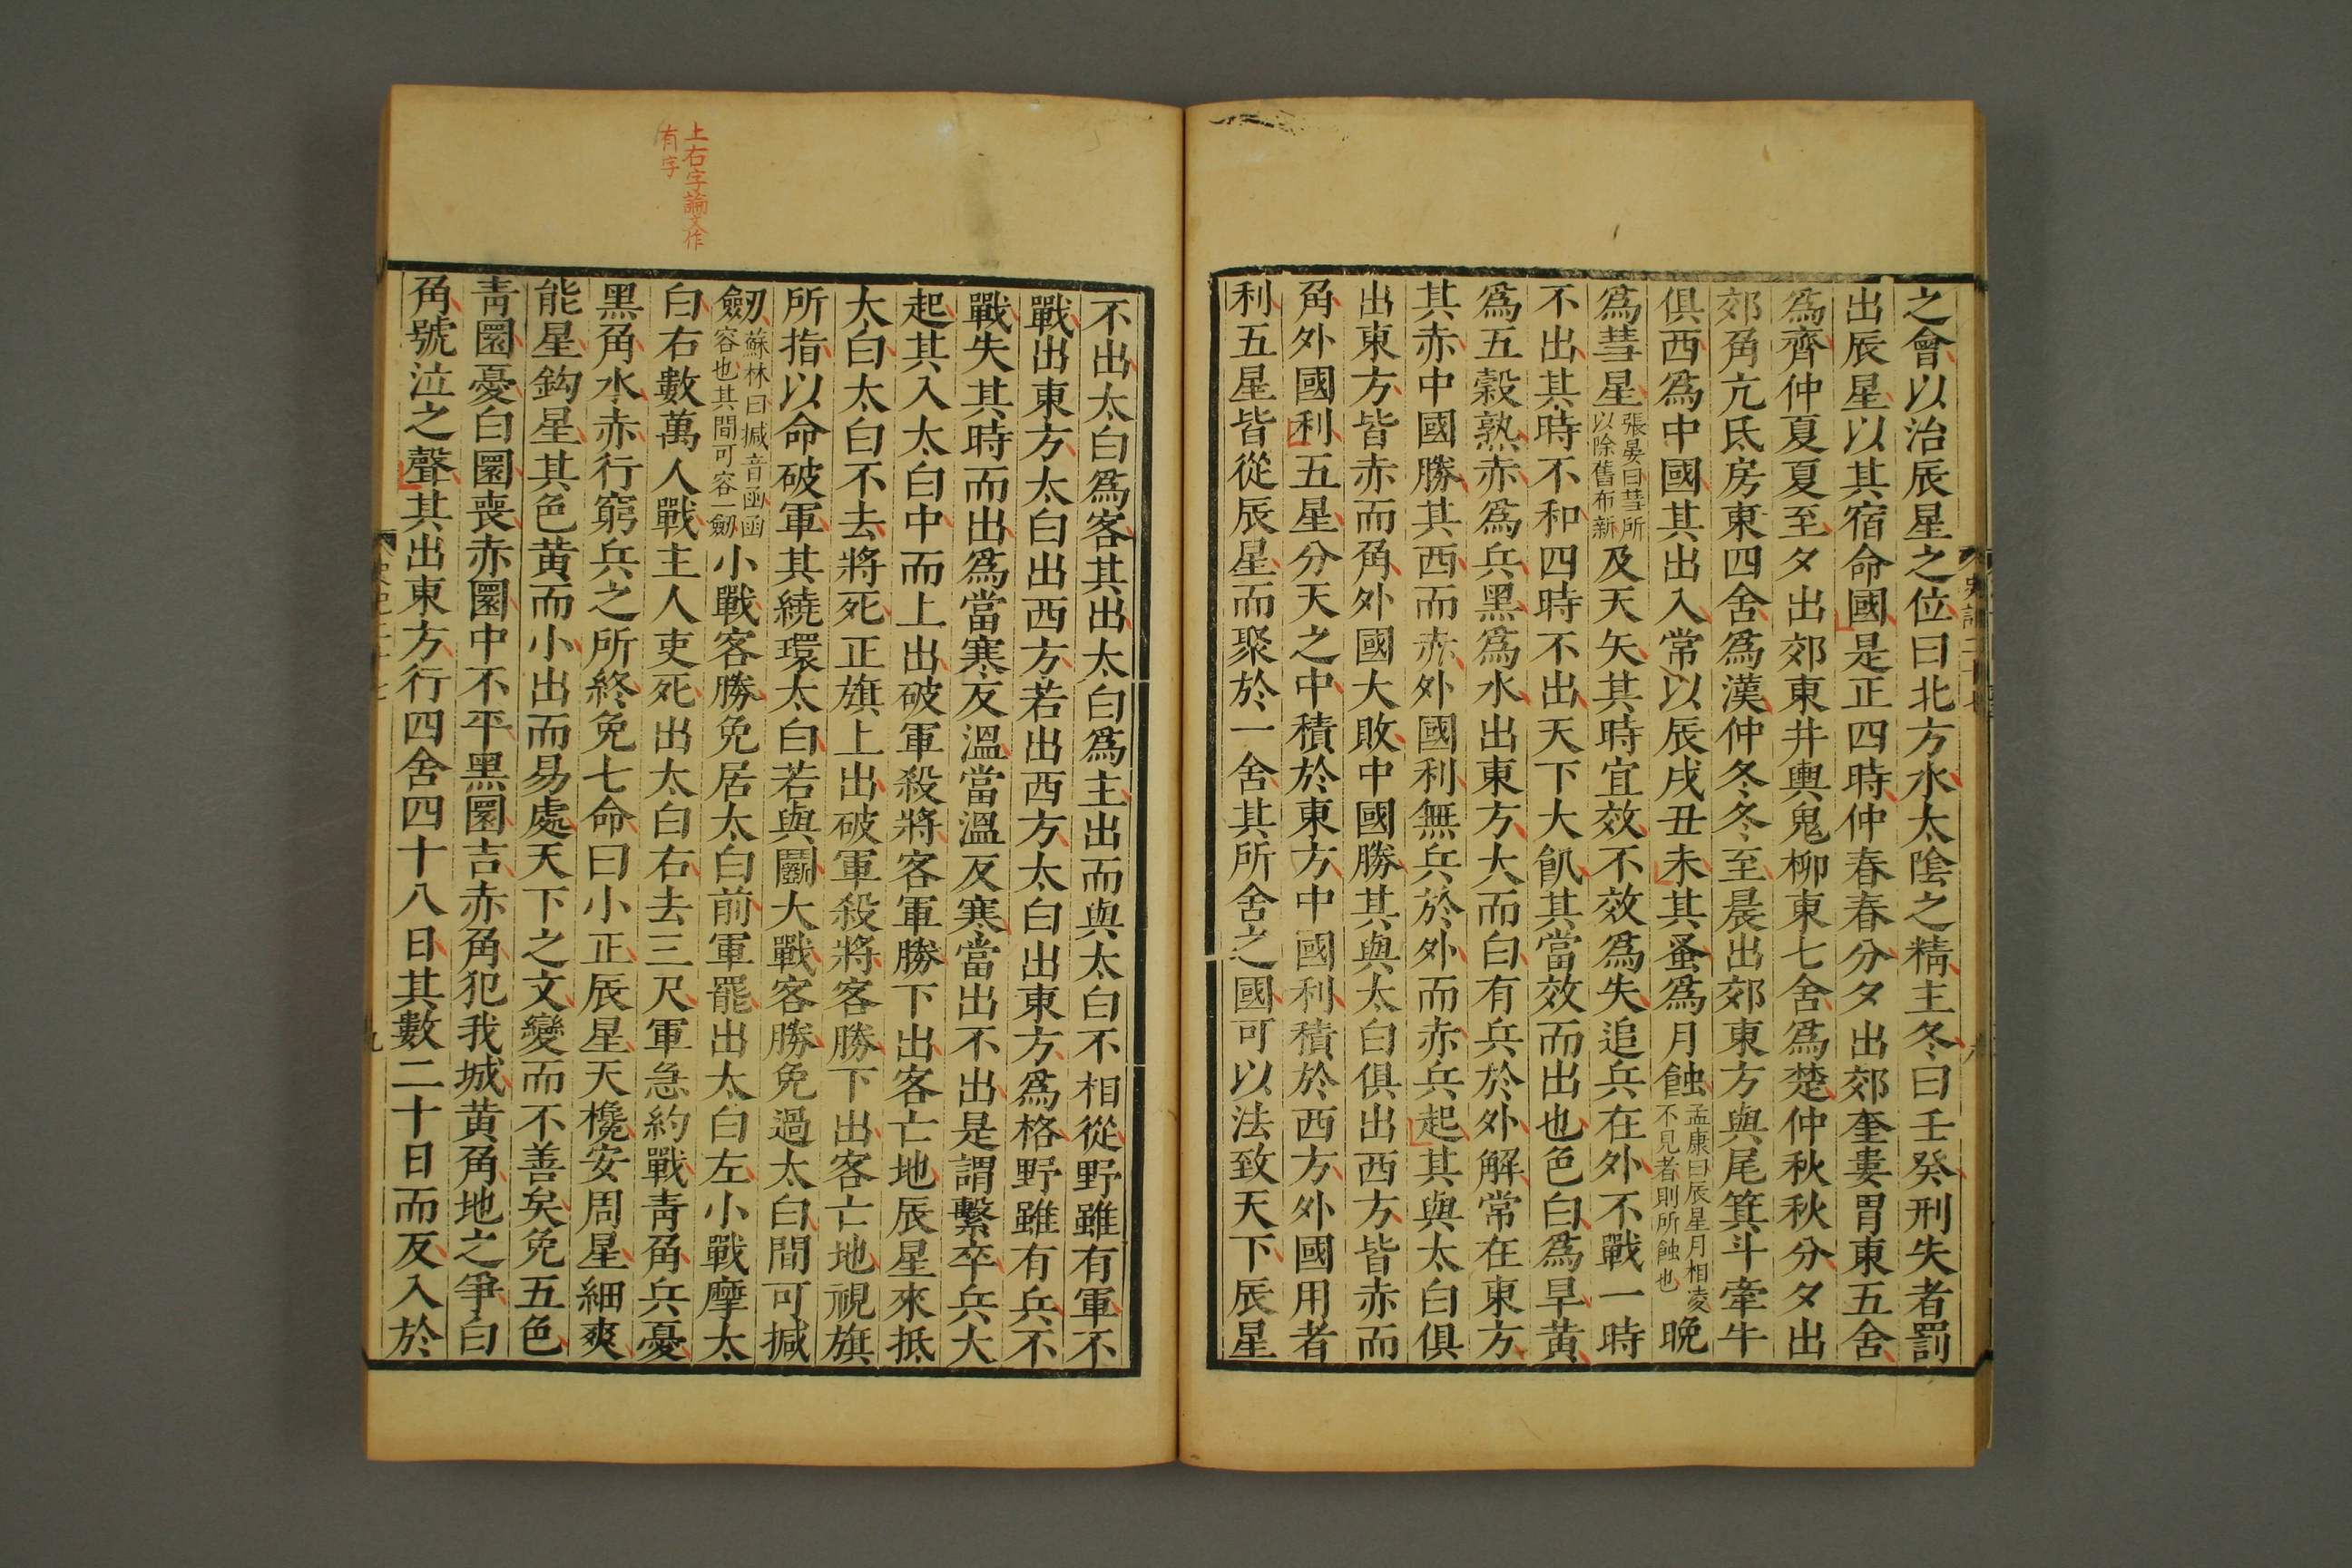 之會以治辰星之位曰北方水太陰之精主冬曰壬癸刑失者罰
出辰星以其宿命國是正四時仲春春分夕出郊奎婁胃東五舍
爲齊仲夏夏至夕出郊東井輿鬼柳東七舍爲楚仲秋秋分夕出
郊角亢氐房東四舍爲漢仲冬冬至晨出郊東方與尾箕斗牽牛
俱西爲中國其出入常以辰戌丑未其蚤爲月蝕孟康曰辰星月相凌不見者則所蝕也晚
爲彗星張晏曰彗所以除舊布新及天矢其時宜效不效爲失追兵在外不戰一時
不出其時不和四時不出天下大飢其當效而出也色白爲旱黃
爲五穀熟赤爲兵黑爲水出東方大而白有兵於外解常在東方
其赤中國勝其西而赤外國利無兵於外而赤兵起其與太白俱
出東方皆赤而角外國大敗中國勝其與太白俱出西方皆赤而
角外國利五星分天之中積於東方中國利積於西方外國用者
利五星皆從辰星而聚於一舍其所舍之國可以法致天下辰星
不出太白爲客其出太白爲主出而與太白不相從野雖有軍不
戰出東方太白出西方若出西方太白出東方爲格野雖有兵不
戰失其時而出爲當寒反溫當溫反寒當出不出是謂擊卒兵大
起其入太白中而上出破軍殺將客軍勝下出客亡地辰星來抵
太白太白不去將死正旗上出破軍殺將客勝下出客亡地視旗
所指以命破軍其繞環太白若與鬭大戰客勝免過太白間可椷
劒蘇林曰椷音函函容也其間可容一劒小戰客勝免居太白前軍罷出太白左小戰摩太
白右數萬人戰主人吏死出太白右去三尺軍急約戰靑角兵憂
黑角水赤行窮兵之所終免七命曰小正辰星天欃安周星細爽
能星鈎星其色黃而小出而易處天下之文變而不善矣免五色
靑圜憂白圜喪赤圜中不平黑圜吉赤角犯我城黃角地之爭白
角號泣之聲其出東方行四舍四十八日其數二十日而反入於
上右字論文作
有字